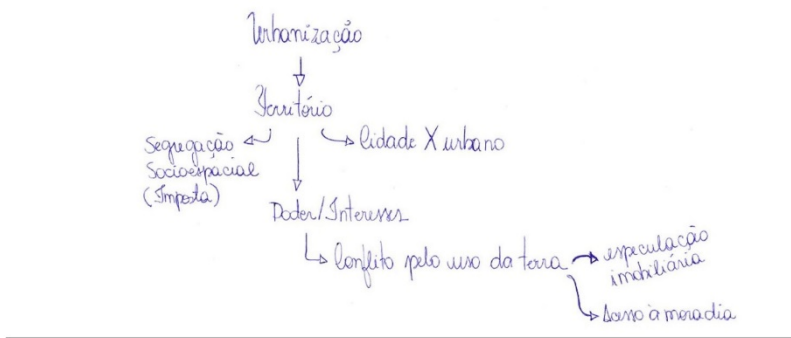 Urbanização
Território
Segregação
Socioespacial
(Imposta)
Cidade X urbano
Poder/Interesses
Conflito pelo uso da terra
especulação
imobiliária
Acesso à moradia